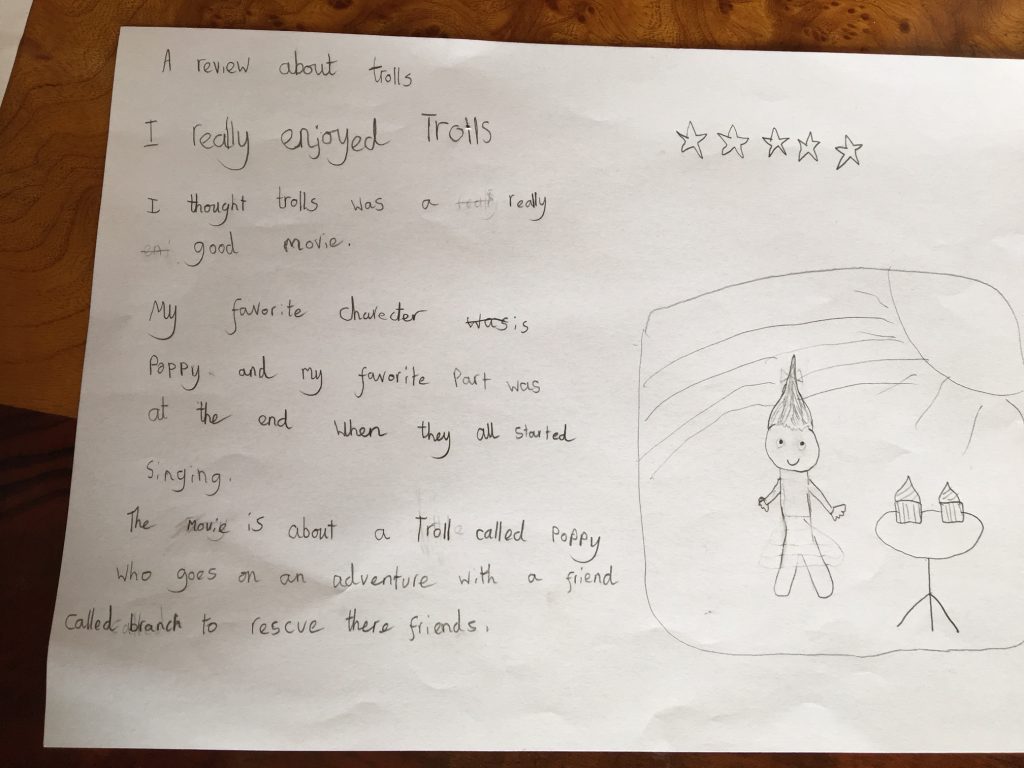 A review about trolls
I really enjoyed Trolls
I thought trolls was a really
good movie.
My favorite charecter was is
Poppy and my favorite Part was
at the end when they all started
Singing.
The movie is about a Troll called Poppy
who goes on an adventure with a friend
called branch to rescue there friends.